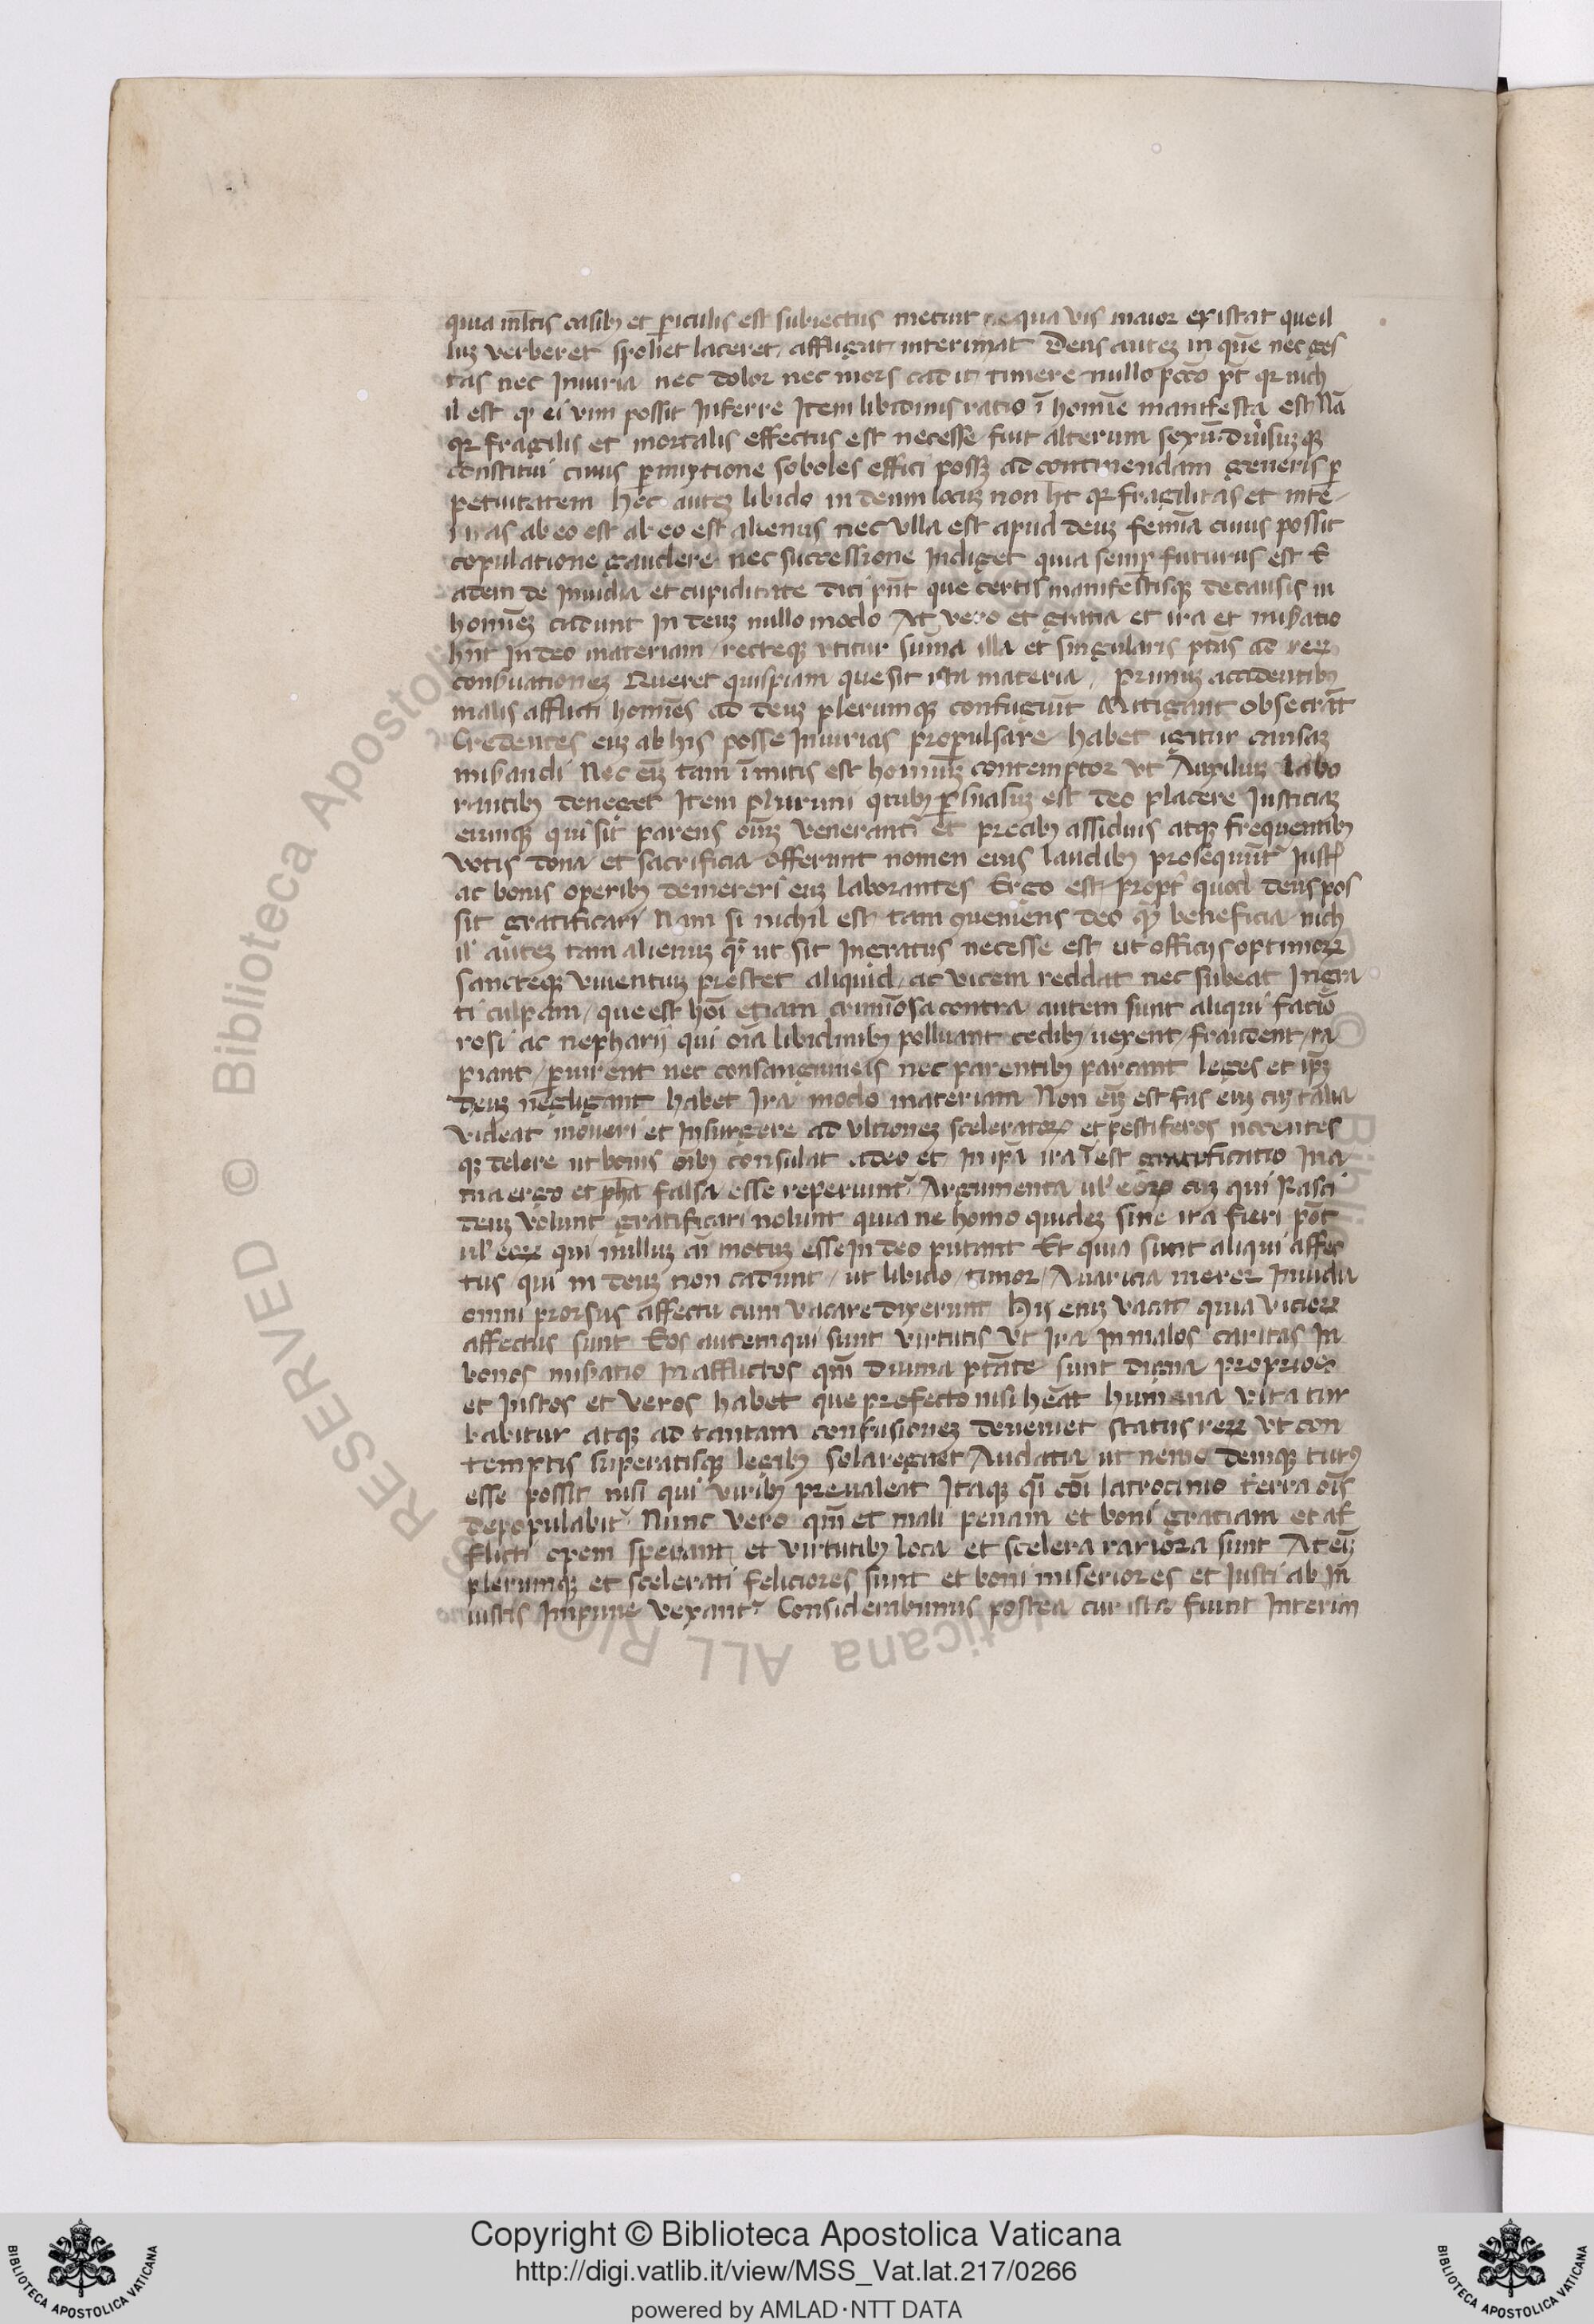 quia ml̄tis casibꝫ et ꝑiculis est subiectus metuit ne qua vis maior existat que il
luꝫ verberet spoliet laceret affligat interimat Deus auteꝫ in quē nec eges
tas nec Iniuria nec dolor nec mors cadit timere nullo pc̄to pt̄ qꝛ nich
il est qͥ ei vim possit Inferre Item libidinis ratio ī homīe manifesta est Nā
qꝛ fragilis et mortalis effectus est necesse fuit alterum sexū diuisuꝫqꝫ
constitui cuius ꝑmixtione soboles effici possꝫ ad continendam generis ꝑ
petuitatem hec auteꝫ libido in deum locuꝫ non ht̄ qꝛ fragilitas et inte
ritas ab eo est ab eo est alienus nec vlla est apud deuꝫ femīa cuius possit
copulatione gaudere nec successione Indiget quia semꝑ futurus est E
adem de Inuidia et cupiditate dici pn̄t que certis manifestisqꝫ de causis in
homineꝫ cadunt In deuꝫ nullo modo At vero et gratia et ira et miẜatio
hn̄t In deo materiam recteqꝫ vtitur sum̄a illa et singularis ptās ad reꝝ
conẜuationeꝫ Queret quispiam que sit ista materia Primuꝫ accidentibꝫ
malis afflicti homīes ad deuꝫ plerumqꝫ confugiūt Mitigant obsecrāt
Credentes euꝫ ab his posse Iniurias propulsare habet igitur causaꝫ
miẜandi Nec eīꝫ tam īmitis est hominuꝫ contemptor vt Auxiliuꝫ labo
rantibꝫ deneget Item plurimi qͥbꝫ ꝑsuasuꝫ est deo placere Iusticiaꝫ
eumqꝫ qui sit parens om̄iꝫ venerant̄ et precibꝫ assiduis atqꝫ frequentibꝫ
votis dona et sacrificia offerunt nomen eius laudibꝫ prosequūt̄ Iusti
ac bonis operibꝫ demereri euꝫ laborantes Ergo est propt̄ quod deus pos
sit gratificari Nam si nichil est tam ꝯueniens deo qͣꝫ beneficia nich
il auteꝫ tam alienuꝫ qͣꝫ ut sit Ingratus necesse est ut officijs optimoꝝ
sancteqꝫ viuentiuꝫ prestet aliquid ac vicem reddat nec subeat Ingra
ti culpam que est hōi etiam criminosa contra autem sunt aliqui facio
rosi ac nepharij qui oīa libidinibꝫ polluant cedibꝫ uexent fraudent ra
piant ꝑiurent nec consanguineis nec parentibꝫ parcant leges et ip̄ꝫ
deuꝫ negligant habet Ira modo materiam Non eīꝫ est fas euꝫ cuꝫ talia
videat moueri et Insurgere ad vltioneꝫ sceleratoꝝ et pestiferos nocentes
qꝫ delere ut bonis oībꝫ consulat adeo et In ip̄a ira est gratificatio Ina
nia ergo et falsa esse reperiunt̄ Argumenta ul̓ eoꝝ cuꝫ qui Nasci
deuꝫ volunt gratificari nolunt quia ne homo quideꝫ sine ira fieri pōt
ul̓ eoꝝ qui nulluꝫ aī motuꝫ esse In deo putant Et quia sunt aliqui affec
tus qui in deuꝫ non cadunt ut libido timor Auaricia meror Inuidia
omni prorsus affectu eum vacare dixerunt His enꝫ vacat quia vicioꝝ
affectus sunt Eos autem qui sunt virtutis Vt Ira In malos caritas In
bonos miẜatio In afflictos qm̄ diuina ptāte sunt digna proprios
et Iustos et veros habet que profecto nisi hēat humana vita tur
babitur atqꝫ ad tantam confusioneꝫ deueniet status reꝝ vt con
temptis superatisqꝫ legibꝫ sola regnet Audatia ut nemo deniqꝫ tutꝰ
esse possit nisi qui viribꝫ preualeat Itaqꝫ qͣi cōi latrocinio terra oīs
depopulabit̄ Nunc vero qm̄ et mali penam et boni gratiam et af
flicti opem sperant et virtutibꝫ loca et scelera rariora sunt At eīꝫ
plerumqꝫ et scelerati feliciores sunt et boni miseriores et Iusti ab In
iustis Impune vexant̄ Considerabimus postea cur ista fiunt Interim
© Biblioteca Apostolica Vaticana ALL RIGHTS RESERVED
Copyright © Biblioteca Apostolica Vaticana
http://digi.vatlib.it/view/MSS_Vat.lat.217/0266
powered by AMLAD·NTT DATA
BIBLIOTECA APOSTOLICA VATICANA
BIBLIOTECA APOSTOLICA VATICANA